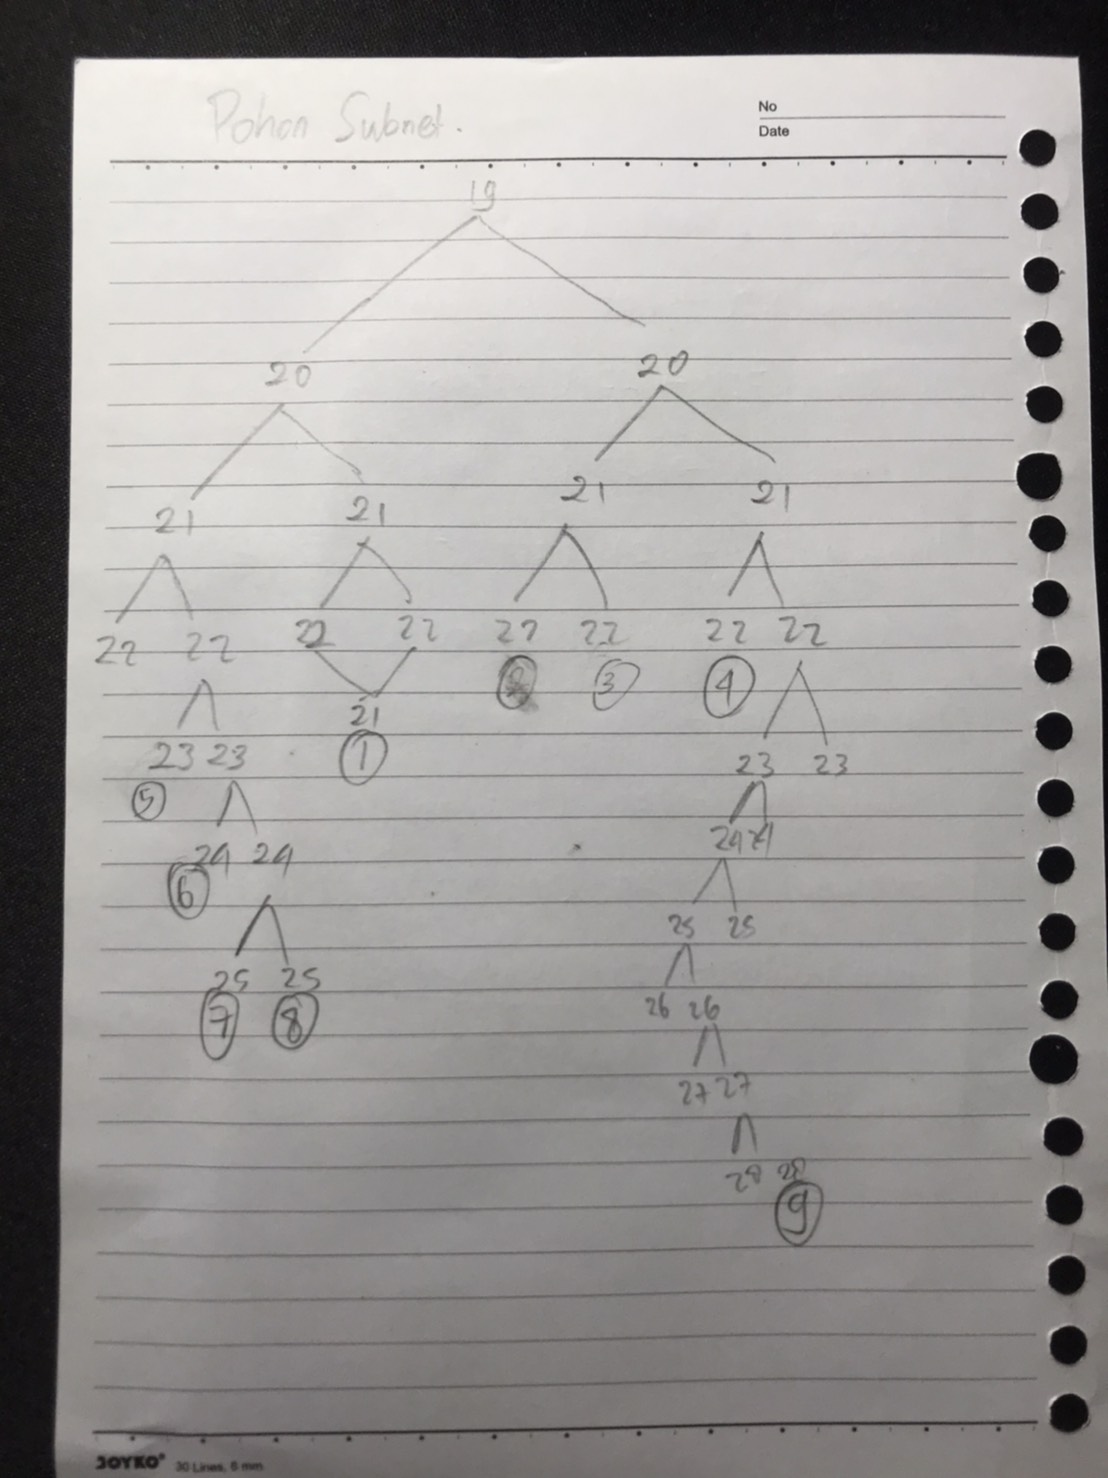 Pohon Subnet.
No
Date
19
20 20
21 21 21 21
22 22 22 22 22 22 22 22
3 4
21
23 23 1 23 23
5
24
24 24
6
25 25
25 25
7 8
26 26
27 27
28 28
9
JOYKO 30 Lines, 6 mm